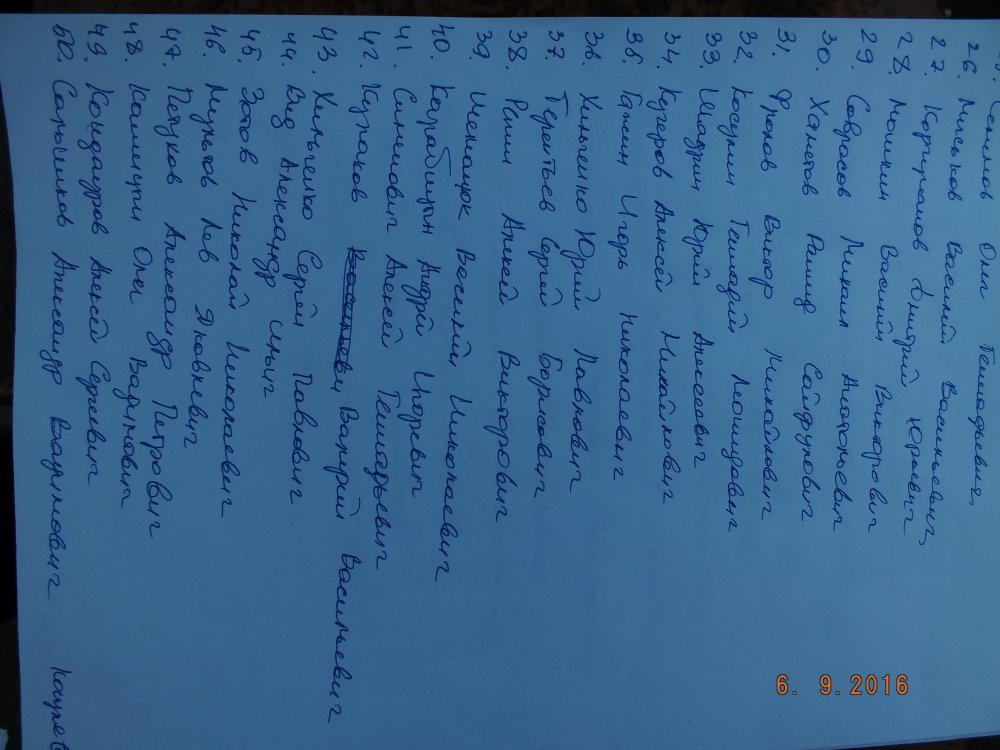 Олег Геннадьевич,
26. Миськов Василий Васильевич,
27. Дмитрий Юрьевич
28. Мошкин Василий Викторович
29. Саврасов Михаил Анатольевич
30. Халитов Рашид
31. Фролов Виктор Николаевич
32. Косулин Геннадий Леонидович
33. Шадрин Юрий Алексеевич
34. Кучеров Алексей Михайлович
35. Галкин Игорь Николаевич
36. Хильченко Юрий Павлович
37. Терентьев Сергей Борисович
38. Репин Алексей Викторович
39. Шемащук Василий Николаевич
40. Карабицын Андрей Игоревич
41. Симкович Алексей Геннадьевич
42. Кузнаков Валерий Васильевич
43. Хильченко Сергей Павлович
44. Вид Александр Ильич
45. Зотов Николай Николаевич
46. Мультов Лев Яковлевич
47. Петухов Александр Петрович
48. Олег Вадимович
49. Кондауров Алексей Сергеевич
50. Сапожников Александр Вадимович
6. 9.2016